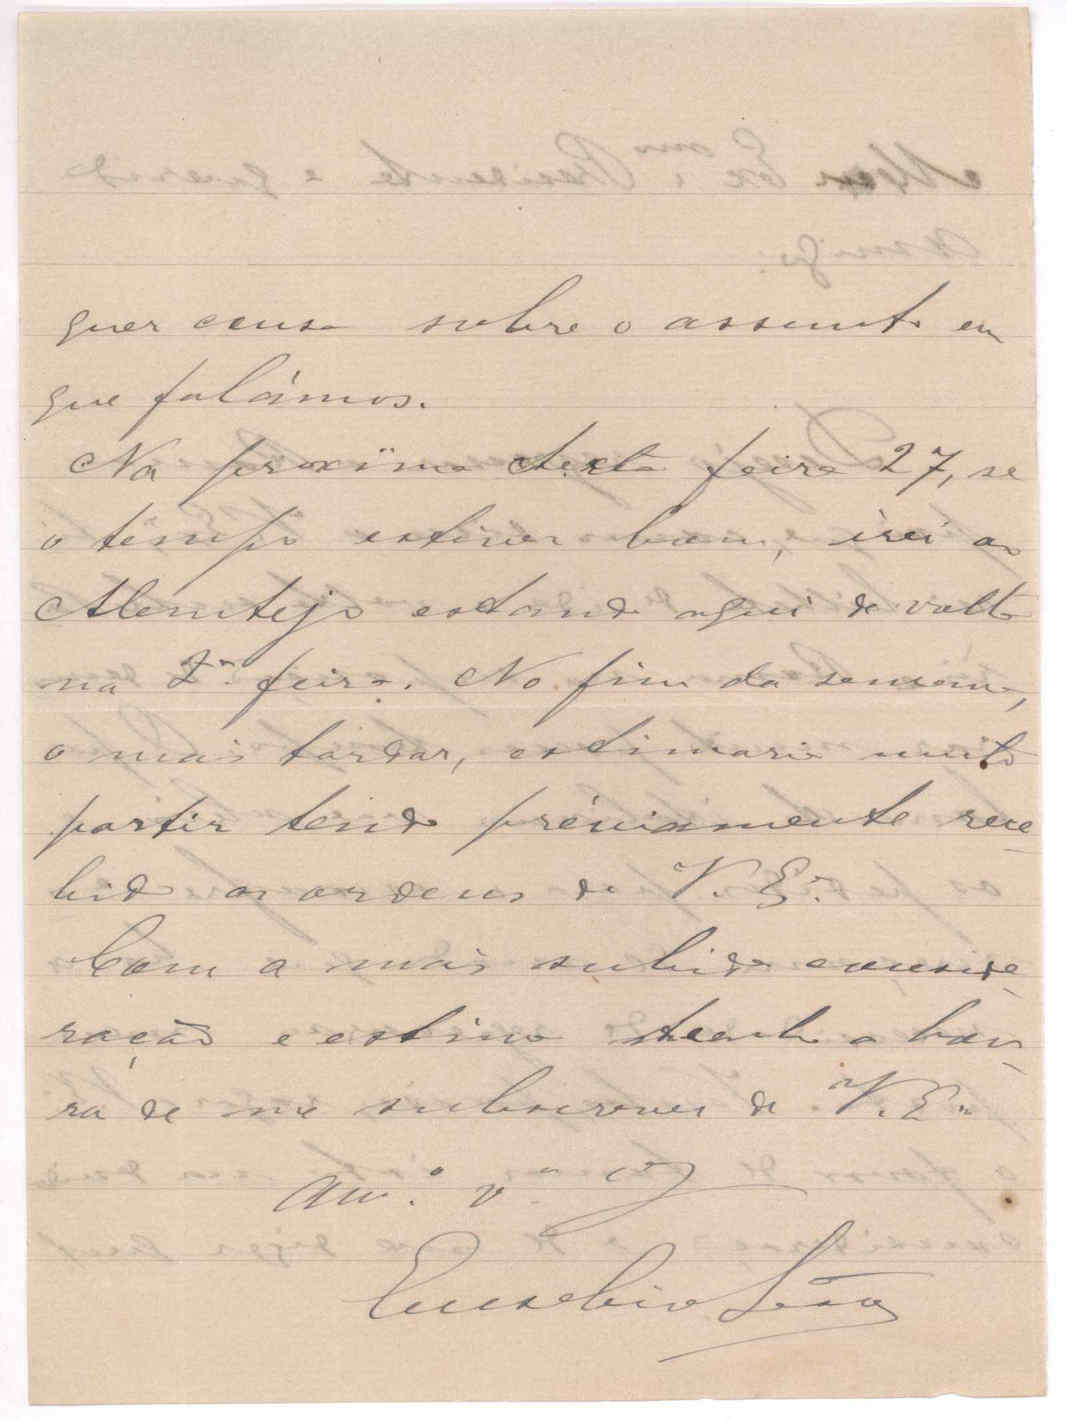 quer cousa sobre o assumto em
que falámos.
Na proxima sexta feira 27, se
o têmpo estiver bom, irei ao
Alemtejo estando aqui de volta
na 2ª feira. No fim da semana,
o mais tardar, estimaria muito
partir tendo préviamente rece-
bido as ordens de V. Exª.
Com a mais subida conside-
ração e estima tenho a hon-
ra de me subscrever de V. Exª
amº vº
Eusebio Leão